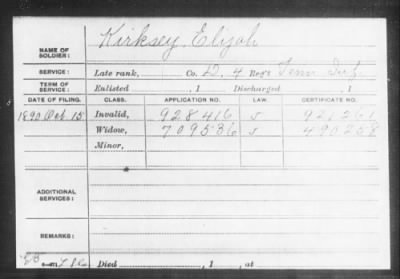 Kirksey, Elijah
NAME OF SOLDIER:
SERVICE: Late rank, Co. D, 4 Reg't Tenn Inf.
TERM OF SERVICE: Enlisted , 1 Discharged , 1
DATE OF FILING. CLASS. APPLICATION NO. LAW. CERTIFICATE NO.
1890 Oct 15 Invalid, 928416 J 921261
Widow, 709536 J 490258
Minor,
ADDITIONAL SERVICES:
REMARKS:
Died , 1 , at